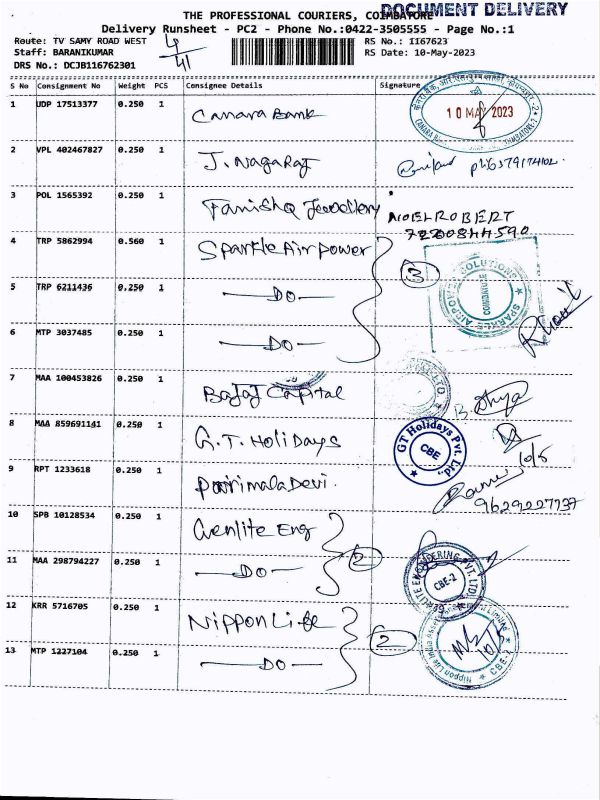 DOCUMENT DELIVERY
THE PROFESSIONAL COURIERS, COIMBATORE
Delivery Runsheet - PC2 - Phone No.:0422-3505555 - Page No.:1
Route: TV SAMY ROAD WEST
RS No.: I167623
Staff: BARANIKUMAR
RS Date: 10-May-2023
DRS No.: DCJB116762301
4/41
S No Consignment No Weight PCS Consignee Details Signature
1 UDP 17513377 0.250 1 Canara Bank
10 MAY 2023
2 VPL 402467827 0.250 1 J. Nagaraj
3 POL 1565392 0.250 1 Tanishq Jewellery NOEL ROBERT
4 TRP 5862994 0.560 1 Sparkle Air power
3
SPARKLE AIRPOWER SOLUTIONS
COIMBATORE
5 TRP 6211436 0.250 1 —DO—
6 MTP 3037485 0.250 1 —DO—
7 MAA 100453826 0.250 1 Bajaj Capital
LTD.
8 MAA 859691141 0.250 1 G.T. Holidays
GT Holidays Pvt. Ltd.,
CBE
10/5
9 RPT 1233618 0.250 1 Parimala Devi
9629227737
10 SPB 10128534 0.250 1 Genlite Eng
11 MAA 298794227 0.250 1 —DO—
2
ENGINEERING PVT. LTD.
CBE-2
12 KRR 5716705 0.250 1 Nippon Life
2
Nippon Life India Asset Limited
CBE-2
10/5
13 MTP 1227104 0.250 1 —DO—